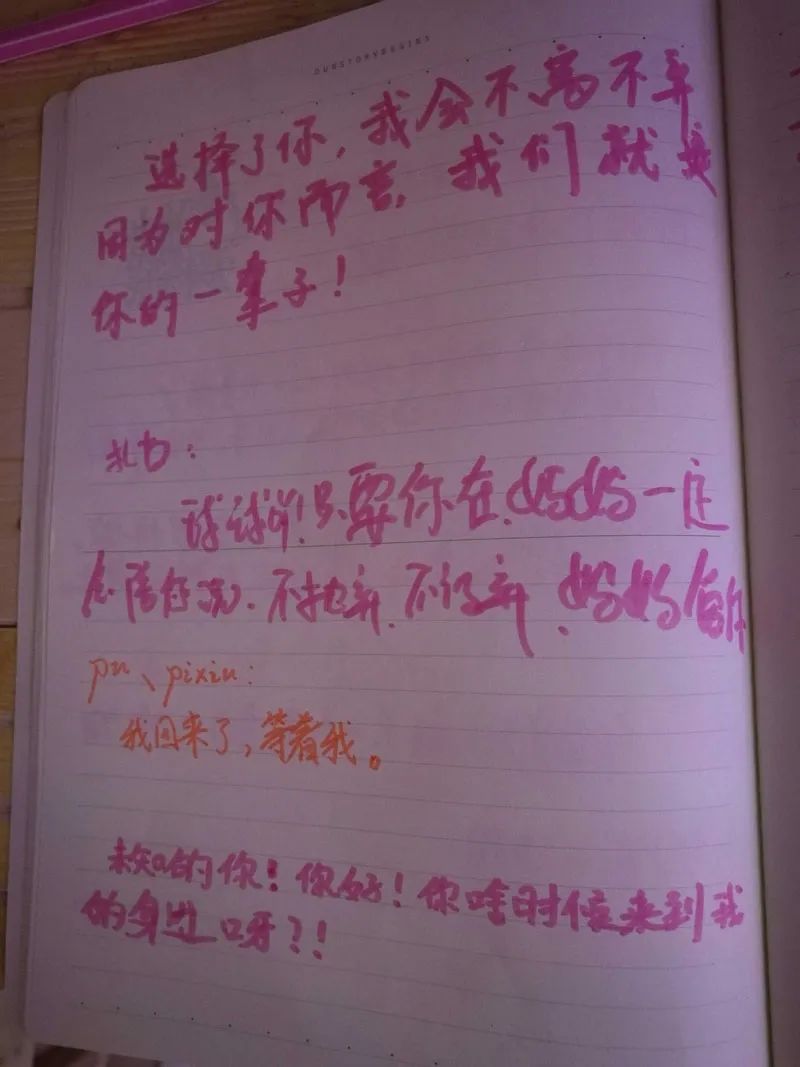 OURSTORYBEGINS
选择了你，我会不离不弃
因为对你而言，我们就是
你的一辈子！
扎力：
球球呀！只要你在、妈妈一定
不抛弃、不放弃、妈妈
pu、pixiu：
我回来了，等着我。
未知的你！你好！你啥时候来到我
的身边呀？！